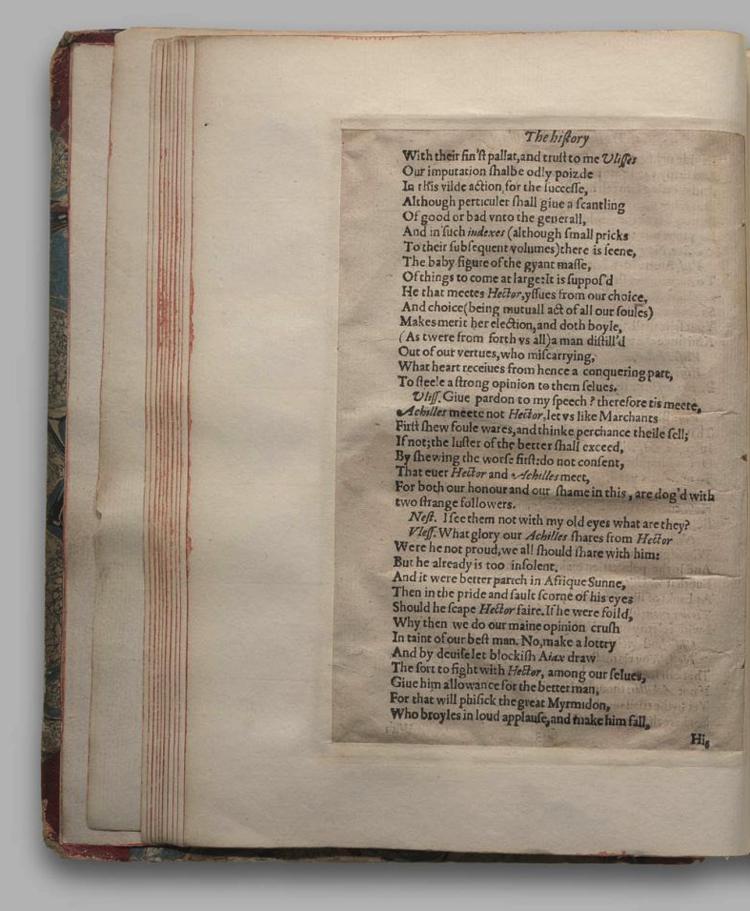 The hiſtory
With their fin'ſt pallat,and truſt to me Vliſſes
Our imputation ſhalbe odly poizde
In this vilde action,for the ſucceſſe,
Although perticuler ſhall giue a ſcantling
Of good or bad vnto the generall,
And in ſuch indexes (although ſmall pricks
To their ſubſequent volumes)there is ſeene,
The baby figure of the gyant maſſe,
Of things to come at large:It is ſuppoſ'd
He that meetes Hector,yſſues from our choice,
And choice(being mutuall act of all our ſoules)
Makes merit her election,and doth boyle,
(As twere from forth vs all)a man diſtill'd
Out of our vertues,who miſcarrying,
What heart receiues from hence a conquering part,
To ſteele a ſtrong opinion to them ſelues.
Vliſſ. Giue pardon to my ſpeech ? therefore tis meete,
Achilles meete not Hector,let vs like Marchants
Firſt ſhew foule wares,and thinke perchance theile ſell;
If not;the luſter of the better ſhall exceed,
By ſhewing the worſe firſt:do not conſent,
That euer Hector and Achilles meet,
For both our honour and our ſhame in this, are dog'd with
two ſtrange followers.
Neſt. I ſee them not with my old eyes what are they?
Vleſſ. What glory our Achilles ſhares from Hector
Were he not proud,we all ſhould ſhare with him:
But he already is too inſolent.
And it were better parch in Affrique Sunne,
Then in the pride and ſault ſcorne of his eyes
Should he ſcape Hector faire. If he were foild,
Why then we do our maine opinion cruſh
In taint of our beſt man. No,make a lottry
And by deuiſe let blockiſh Aiax draw
The ſort to fight with Hector, among our ſelues,
Giue him allowance for the better man,
For that will phiſick the great Myrmidon,
Who broyles in loud applauſe,and make him fall,
His